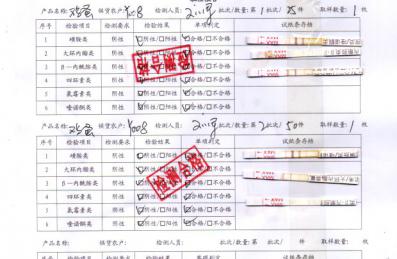 产品名称: 鸡蛋 供货农户: 检测人员: 批次/数量: 第 1 批次/ 件 取样数量: 1 枚
序号 检验项目 检验要求 检验结果 单项判定 试纸条存档
1 磺胺类 阴性 ☑阴性/□阳性 ☑合格/□不合格
2 大环内酯类 阴性 ☑阴性/□阳性 ☑合格/□不合格
3 β-内酰胺类 阴性 ☑阴性/□阳性 ☑合格/□不合格
4 四环素类 阴性 ☑阴性/□阳性 ☑合格/□不合格
5 氯霉素类 阴性 ☑阴性/□阳性 ☑合格/□不合格
6 喹诺酮类 阴性 ☑阴性/□阳性 ☑合格/□不合格
检测合格
产品名称: 鸡蛋 供货农户: 检测人员: 批次/数量: 第 2 批次/ 50 件 取样数量: 1 枚
序号 检验项目 检验要求 检验结果 单项判定 试纸条存档
1 磺胺类 阴性 ☑阴性/□阳性 ☑合格/□不合格
2 大环内酯类 阴性 ☑阴性/□阳性 ☑合格/□不合格
3 β-内酰胺类 阴性 ☑阴性/□阳性 ☑合格/□不合格
4 四环素类 阴性 ☑阴性/□阳性 ☑合格/□不合格
5 氯霉素类 阴性 ☑阴性/□阳性 ☑合格/□不合格
6 喹诺酮类 阴性 ☑阴性/□阳性 ☑合格/□不合格
检测合格
产品名称: 供货农户: 检测人员: 批次/数量: 第 批次/ 件 取样数量: 枚
序号 检验项目 检验要求 检验结果 单项判定 试纸条存档